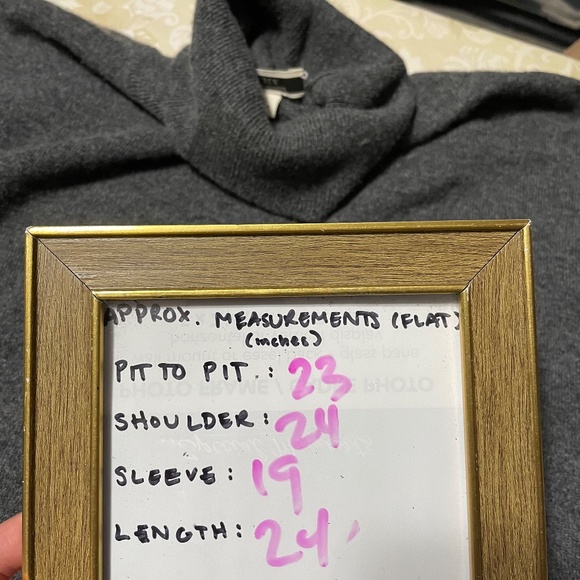 APPROX. MEASUREMENTS (FLAT)
(inches)
PIT TO PIT.: 23
SHOULDER: 24
SLEEVE: 19
LENGTH: 24
PHOTO FRAME /
PHOTO